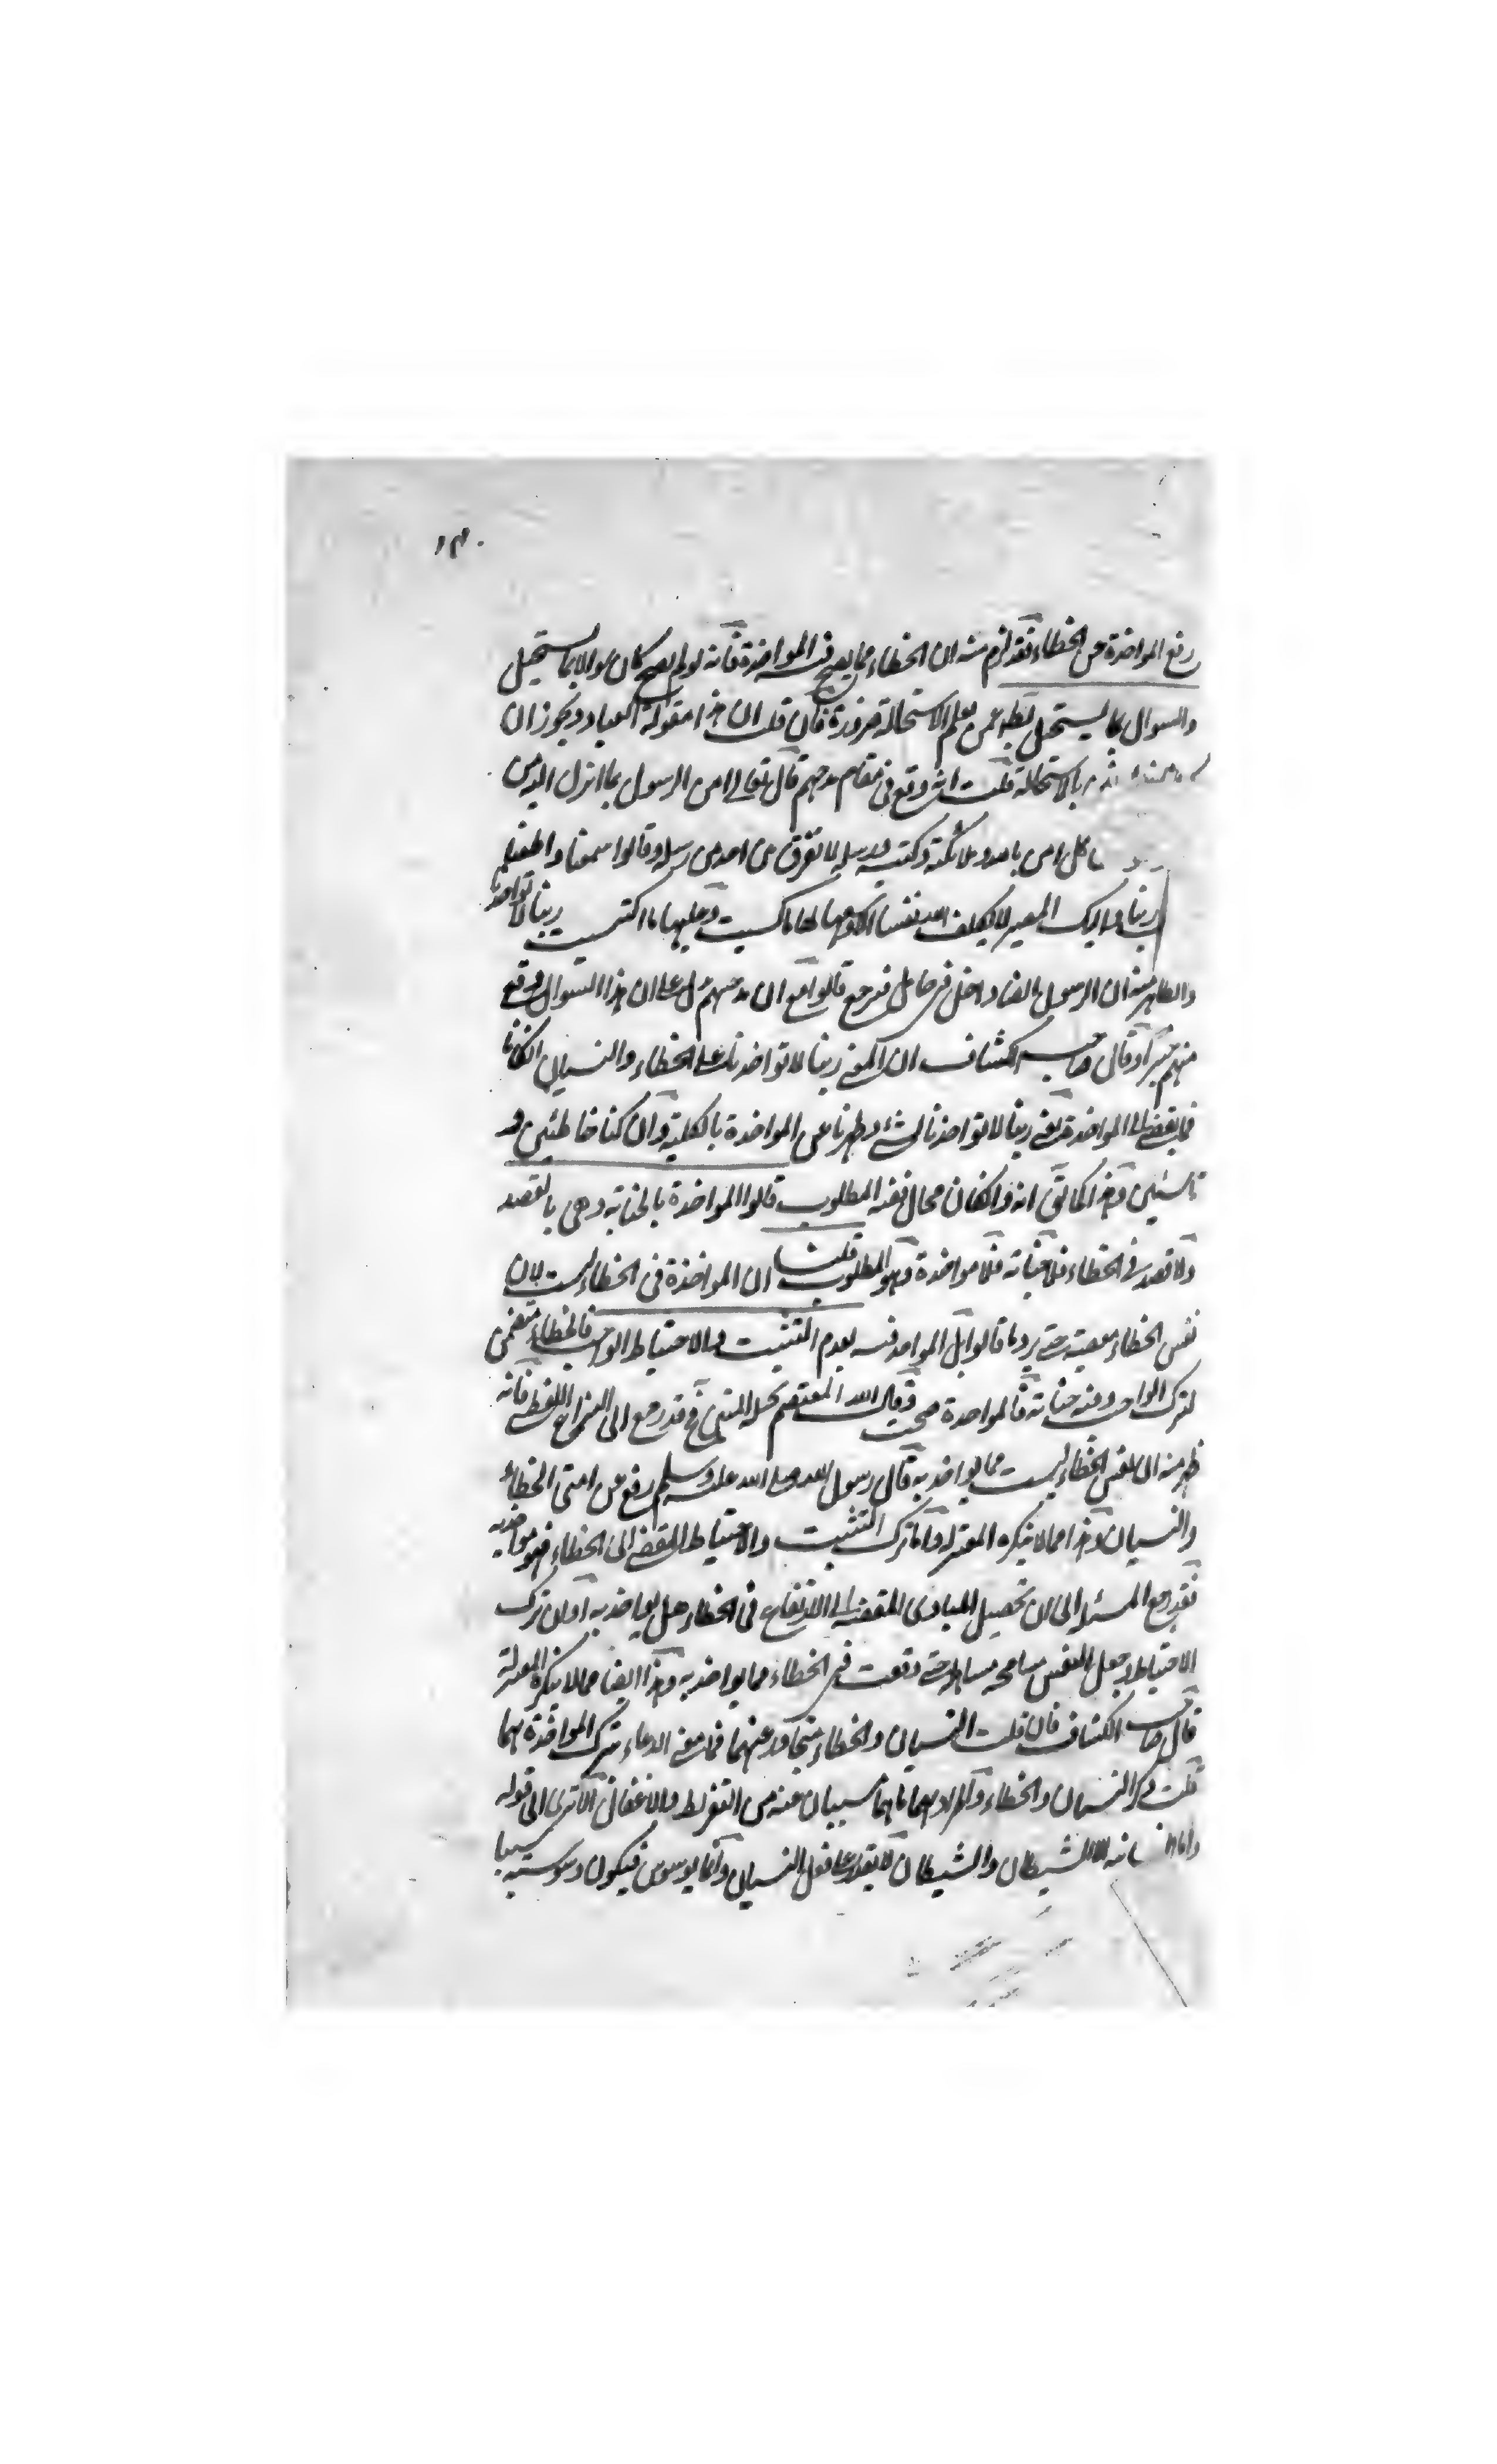 ١٣٠
رفع المواخذة عن الخطاء فقد لزم منه ان الخطاء مما يصح فيه المواخذة فانه لو لم يصح كان سوالا بما يستحيل
والسوال بما يستحيل باطل ممن يعلم الاستحالة ضرورة فان قلت ان هذا مقولة العباد ويجوز ان
بالاستحالة قلت انه وقع في مقام مدحهم قال تعالى امن الرسول بما انزل اليه من
كل امن بالله وملائكته وكتبه ورسله لا نفرق بين احد من رسله وقالوا سمعنا واطعنا
ربنا واليك المصير لا يكلف الله نفسا الا وسعها لها ما كسبت وعليها ما اكتسبت ربنا لا تواخذنا
والظاهر منه ان الرسول ايضا داخل في مرجع قالوا مع ان مدحهم دل على ان هذا السوال وقع
منهم وقال صاحب الكشاف ان المعنى ربنا لا تواخذنا على الخطاء والنسيان
المواخذة ربنا لا تواخذنا لشئ وطهرنا عن المواخذة بالكلية وان كنا خاطئين و
ناسئين وهذا كما انه وان كان محال ففيه المطلوب قالوا المواخذة بالجناية وهي بالقصد
ولا قصد في الخطاء فلا جناية فلا مواخذة وهو المطلوب قلنا ان المواخذة في الخطاء ليست لان
نفس الخطاء معصية حتى يرد ما قالوا بل المواخذة بعدم التثبت والاحتياط الواجب فالخطاء متضمن
لترك الواجب وفيه جناية فالمواخذة صحت وقال العبد المعتصم بحبله المتين فقد رجع الى النزاع اللفظي فانه
ظهر منه ان نفس الخطاء ليست مما يواخذ به قال رسول الله صلى الله عليه وسلم رفع عن امتي الخطاء
والنسيان وهذا مما لا ينكره المعتزلة واما ترك التثبت والاحتياط المفضي الى الخطاء فهو مواخذ به
فقد رجع المسئلة الى ان تحصيل المبادي المفضية الى في الخطاء هل يواخذ به او ان ترك
الاحتياط وجعل النفس حتى وقعت في الخطاء مما يواخذ به وهذا ايضا مما لا ينكره المعتزلة
قال صاحب الكشاف فان قلت النسيان والخطاء متجاوز عنهما فما معنى الدعاء بترك المواخذة بهما
قلت ذكر النسيان والخطاء والمراد بهما ما هما مسببان عنه من التفريط والاغفال الا ترى الى قوله
وما انسانيه الا الشيطان والشيطان لا يقدر على فعل النسيان وانما يوسوس فيكون وسوسته سببا